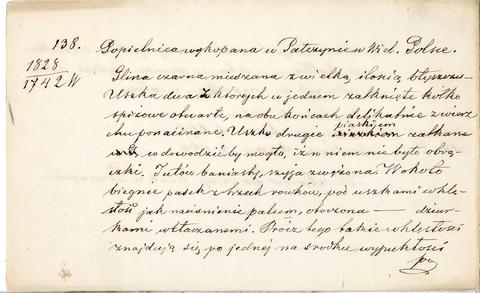 138.
1828
1742 W
Popielnica wykopana w Patczynie w Wiel. Polsce.
Glina czarna mieszana z wielką ilością błyszczu.
Uszka dwa z których w jednem zatknięte kółko
spiżowe otwarte, na obu końcach delikatnie z wierz
chu ponacinane. Uszko drugie piaskiem zatkane
co dowodzić by mogło, iż w niem nie było obrą-
czki. Tułów baniasty, szyja zwężona. W około
biegnie pasek z trzech rowków, pod uszkami wklę-
słość jak naciśnienie palcem, otoczona — dziur-
kami wtłaczanemi. Prócz tego takie wklęsłości
znajdują się po jednej na środku wypukłości